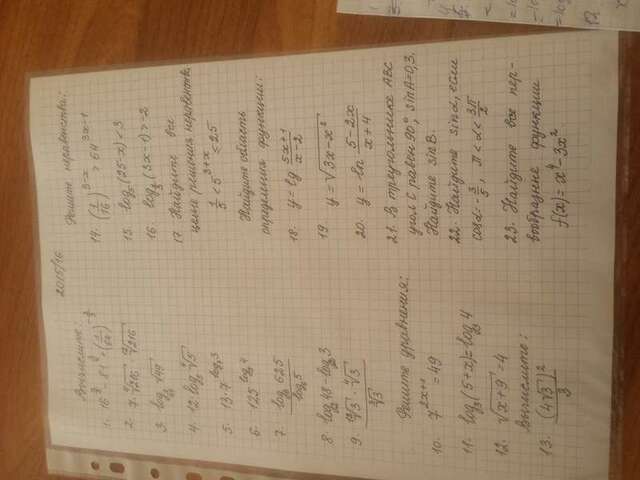 2015/16
Вычислите:
1. 16^{3/2} - 81^{3/4} + (1/64)^{-2/3}
2. 7·\sqrt[4]{216}·\sqrt[12]{216}
3. \sqrt{49}
4. 12·log_5 \sqrt{5}
5. 13·7^{log_7 3}
6. 125^{log_5 4}
7. log_6 625 / log_6 5
8. log_2 48 - log_2 3
9. \sqrt[12]{3} · \sqrt[4]{3} / \sqrt[3]{3}
Решите уравнения:
10. 7^{2x+1} = 49
11. log_3 (5+x) = log_3 4
12. \sqrt{x+9} = 4
Вычислите:
13. (4\sqrt{3})^2 / 3
Решите неравенства:
14. (1/16)^{3-x} > 64^{3x-1}
15. log_5 (25-x) < 3
16. log_{1/3} (3x-1) > -2
17 Найдите все
целые решения неравенства
1/5 < 5^{3+x} ≤ 25
Найдите область
определения функции:
18. y = lg (5x+1)/(x-2)
19. y = \sqrt{3x-x^2}
20. y = ln (5-2x)/(x+4)
21. В треугольнике ABC
угол C равен 90°, sinA=0,3.
Найдите sinB.
22. Найдите sinα, если
cosα = -3/5, π < α < 3π/2
23. Найдите все пер-
вообразные функции
f(x) = x^4 - 3x^2.
12